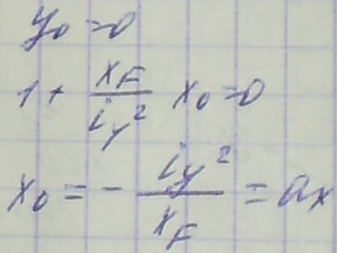 y₀ = 0
1 + x_F / i_y² x₀ = 0
x₀ = - i_y² / x_F = a_x